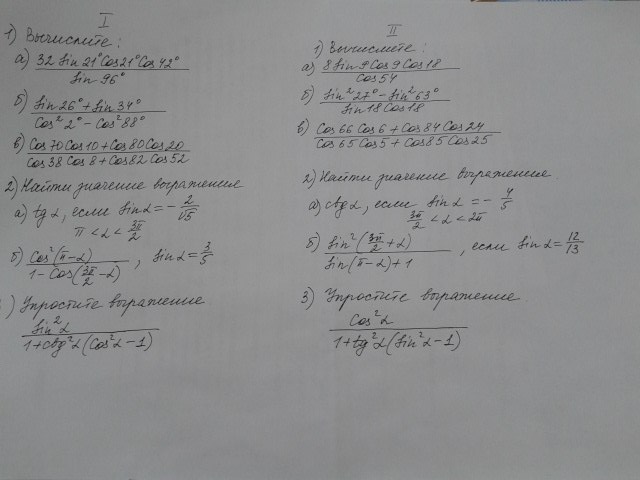 I
1) Вычислите:
а) 32 Sin 21° Cos 21° Cos 42° / Sin 96°
б) Sin 26° + Sin 34° / Cos² 2° - Cos² 88°
в) Cos 70 Cos 10 + Cos 80 Cos 20 / Cos 38 Cos 8 + Cos 82 Cos 52
2) Найти значение выражения
а) tg α, если Sin α = - 2/√5
π < α < 3π/2
б) Cos² (π - α) / 1 - Cos (3π/2 - α) , Sin α = 3/5
) Упростите выражение
Sin² α / 1 + ctg² α (Cos² α - 1)
II
1) Вычислите:
а) 8 Sin 9 Cos 9 Cos 18 / Cos 54
б) Sin² 27° - Sin² 63° / Sin 18 Cos 18
в) Cos 66 Cos 6 + Cos 84 Cos 24 / Cos 65 Cos 5 + Cos 85 Cos 25
2) Найти значение выражения
а) ctg α, если Sin α = - 4/5
3π/2 < α < 2π
б) Sin² (3π/2 + α) / Sin (π - α) + 1 , если Sin α = 12/13
3) Упростите выражение
Cos² α / 1 + tg² α (Sin² α - 1)